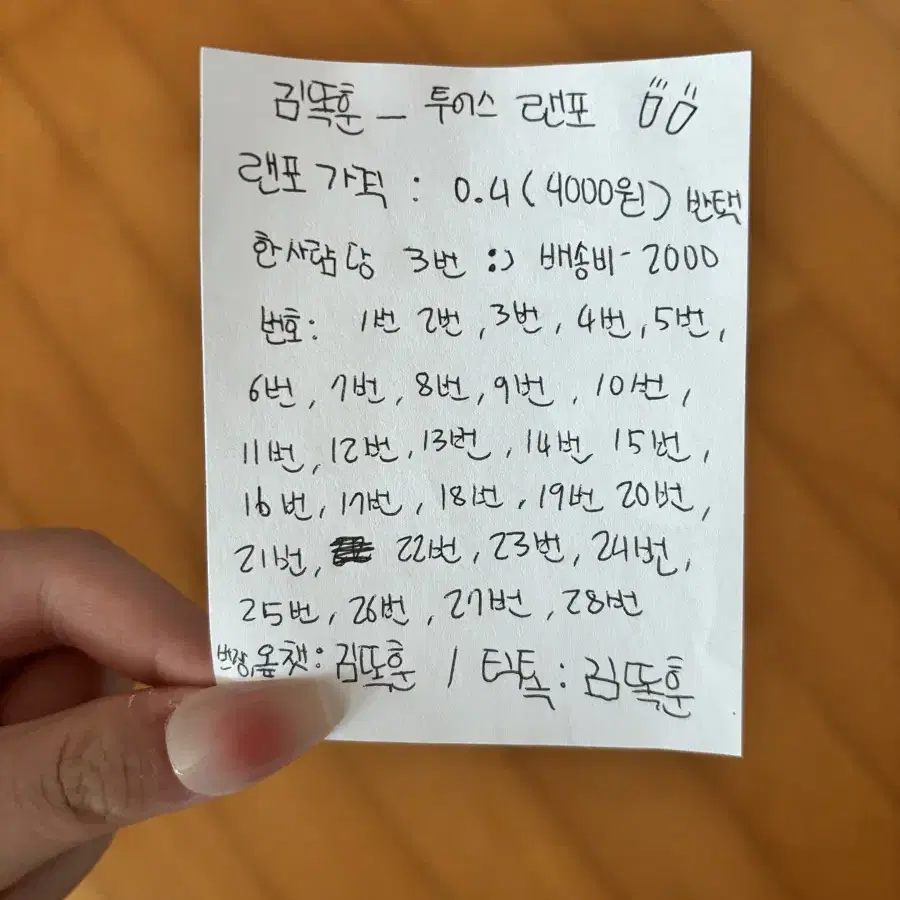 김똑훈 - 투어스 랜포
랜포 가격 : 0.4 (4000원) 반택
한사람당 3번 :) 배송비 - 2000
번호: 1번 2번, 3번, 4번, 5번,
6번, 7번, 8번, 9번, 10번,
11번, 12번, 13번, 14번 15번,
16번, 17번, 18번, 19번 20번,
21번, 22번, 23번, 24번,
25번, 26번, 27번, 28번
번장, 옾챗: 김똑훈 / 틱톡: 김똑훈